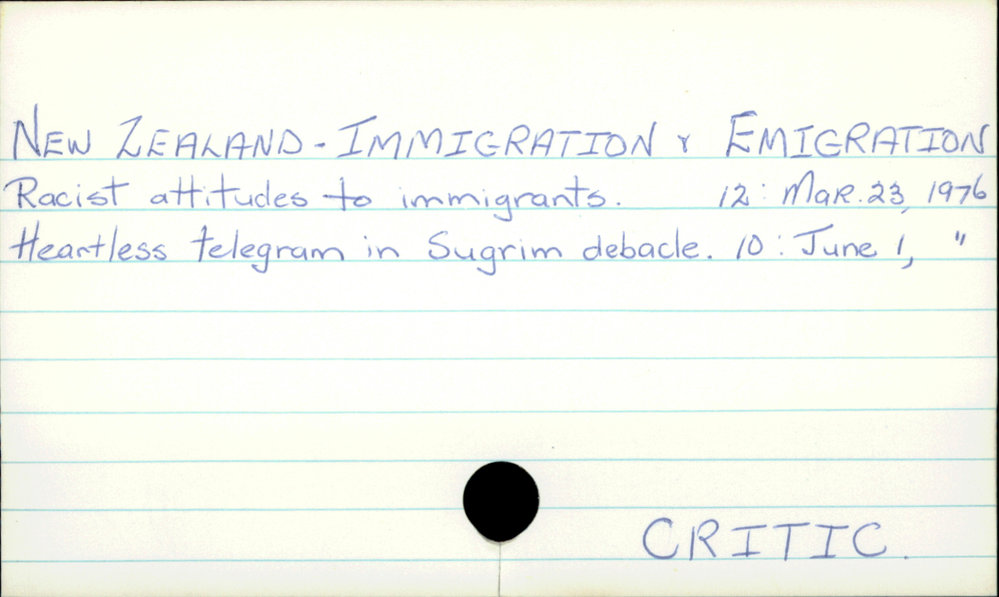 NEW ZEALAND - IMMIGRATION & EMIGRATION
Racist attitudes to immigrants. 12: MAR. 23, 1976
Heartless telegram in Sugrim debacle. 10: June 1, "
CRITIC.